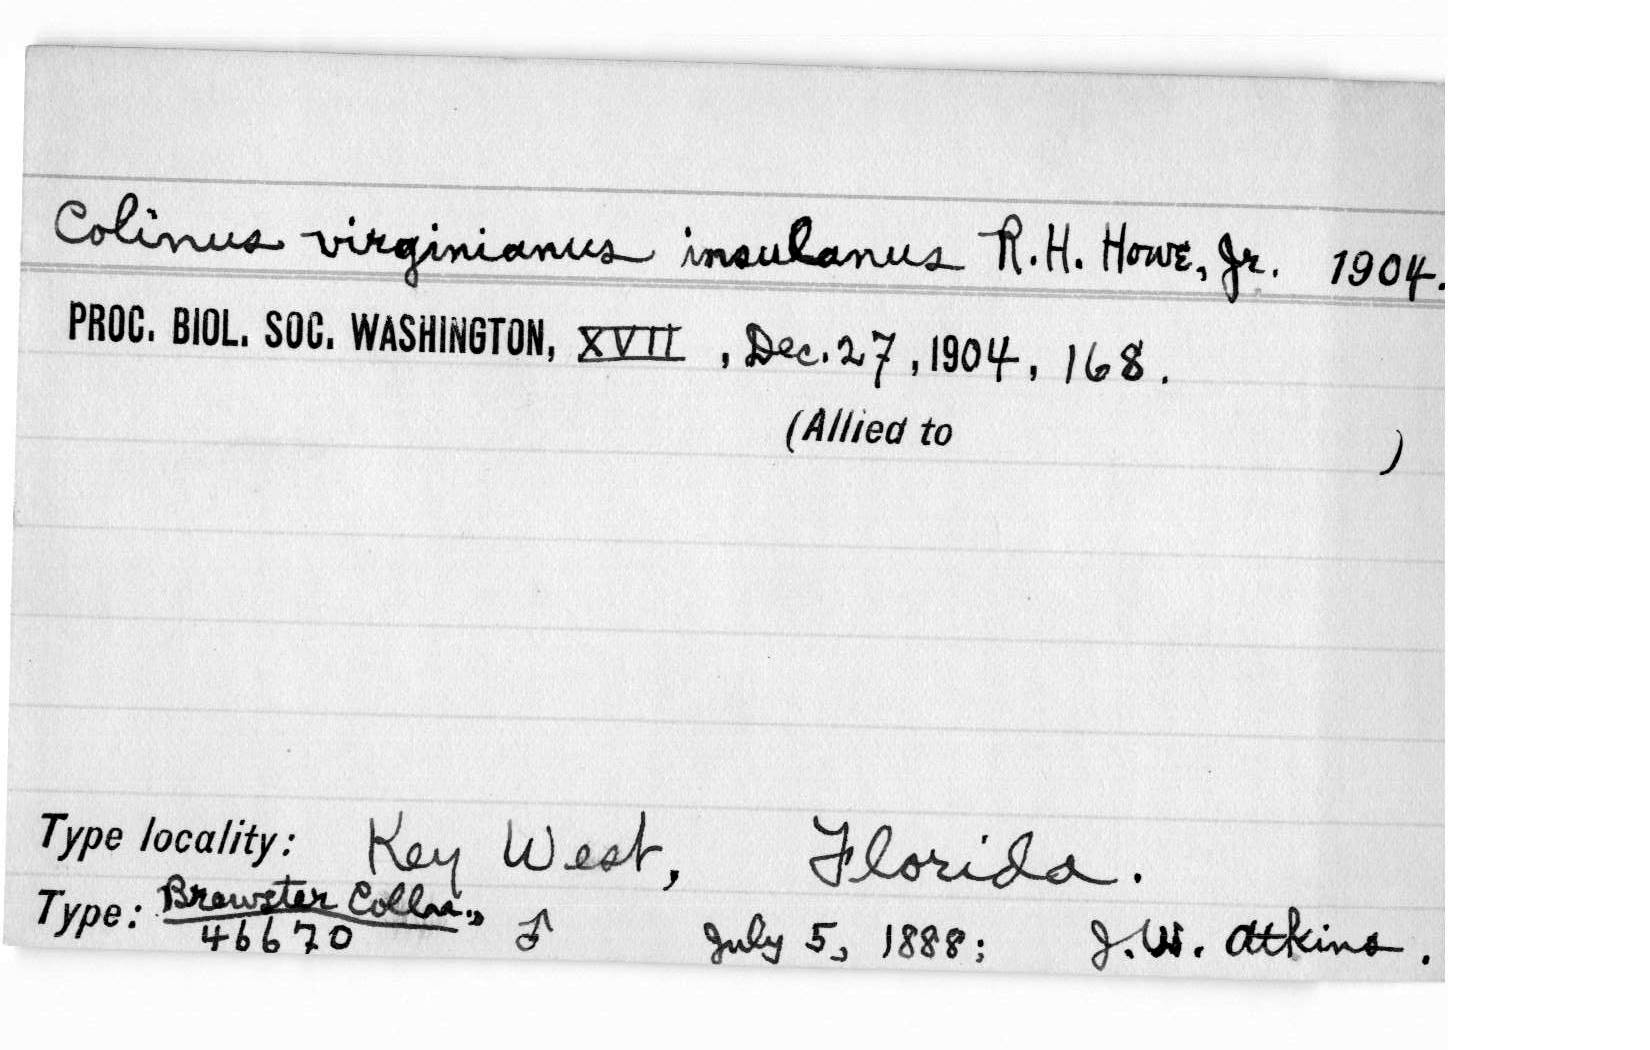 Colinus virginianus insulanus R.H. Howe, Jr. 1904.
PROC. BIOL. SOC. WASHINGTON, XVII, Dec. 27, 1904, 168.
(Allied to )
Type locality: Key West, Florida.
Type: Brewster Colln., ♂ July 5, 1888; J.W. Atkins.
46670